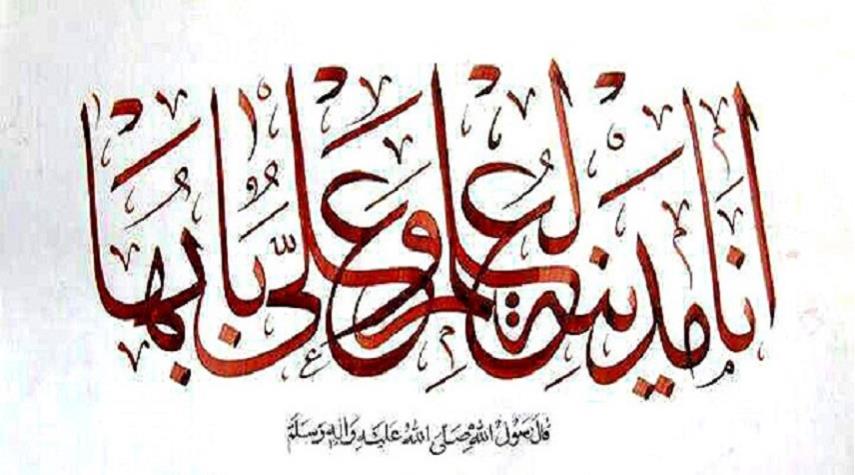 انا مدینة العلم و علیّ بابها
قال رسول الله صلی الله علیه و آله و سلم